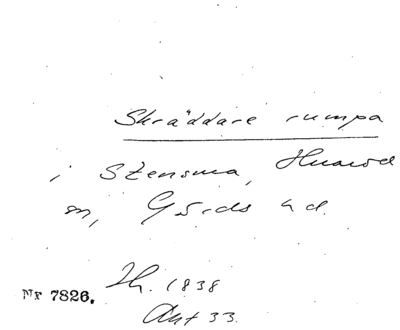 Skräddare rumpa
i Stensma, Huaröd
sn, Gärds hd.
Nr 7826.
1838
Akt 33.